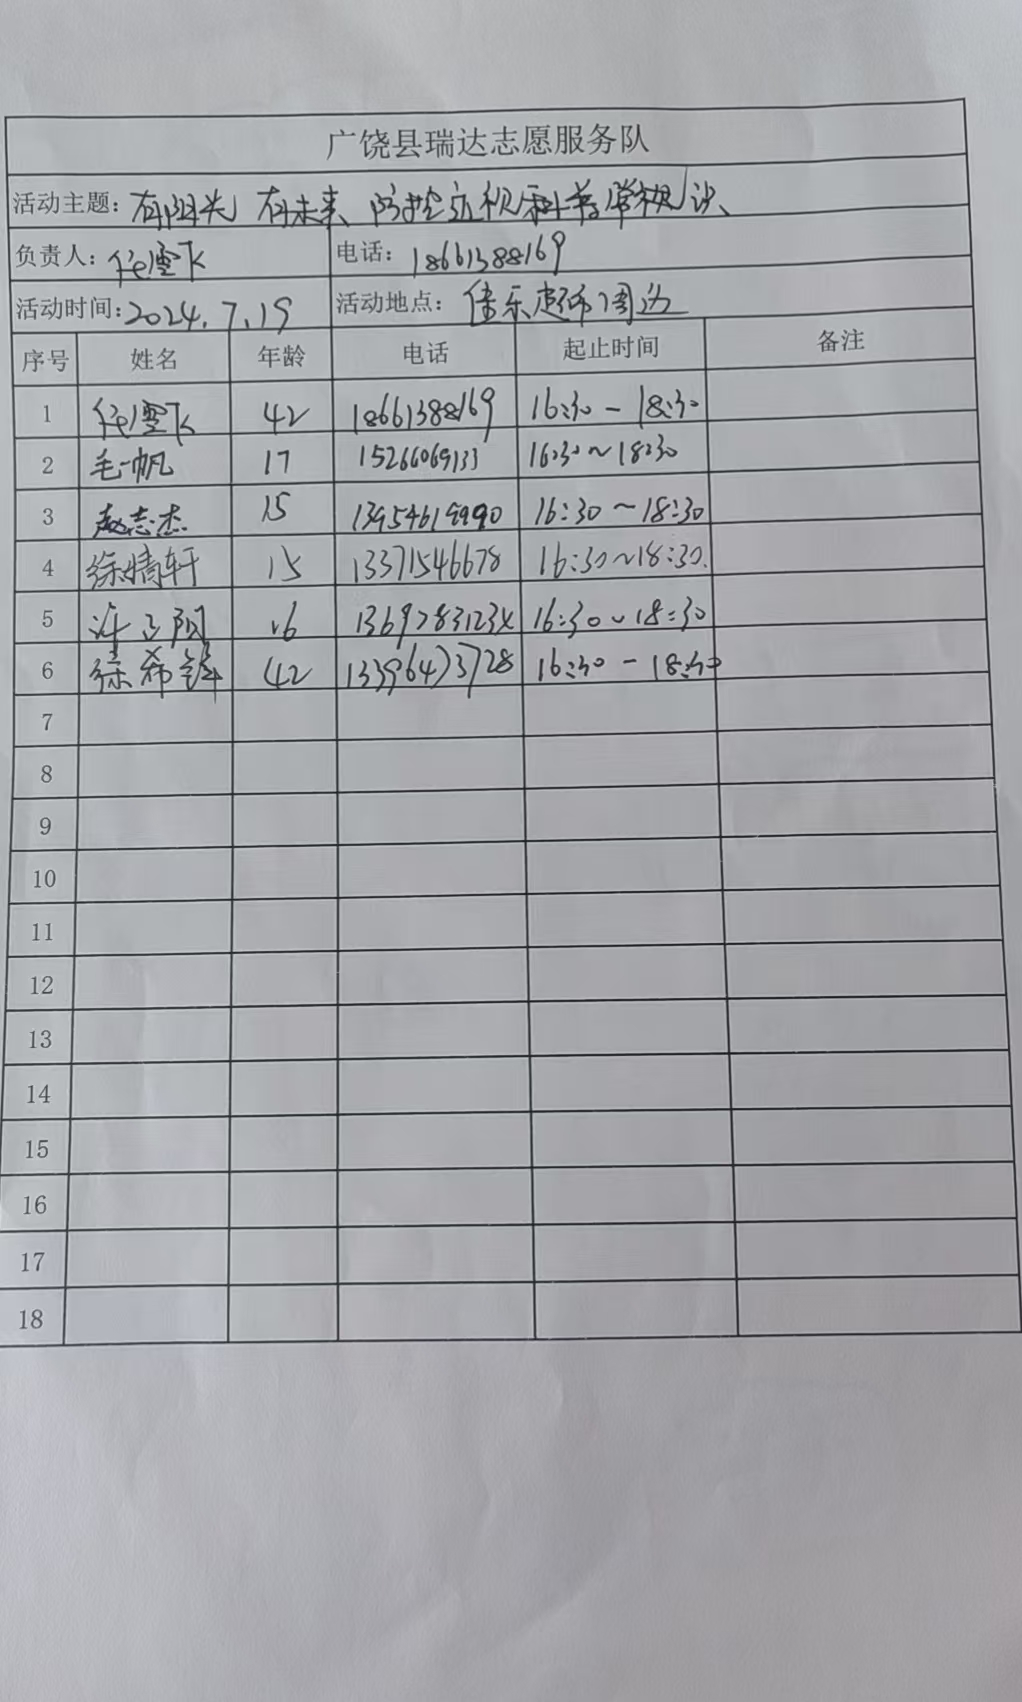 广饶县瑞达志愿服务队
活动主题：有阳光 有未来 防控近视 科普学视识
负责人：任雪飞 电话：18661388169
活动时间：2024.7.19 活动地点：佳乐超市周边
序号 姓名 年龄 电话 起止时间 备注
1 任雪飞 42 18661388169 16:30-18:30
2 毛一帆 17 15266069133 16:30~18:30
3 赵志杰 15 16:30~18:30
4 徐婧轩 15 13371546678 16:30~18:30.
5 许 阳 16 16:30~18:30
6 徐希 42 13396473728 16:30-18:30
7
8
9
10
11
12
13
14
15
16
17
18